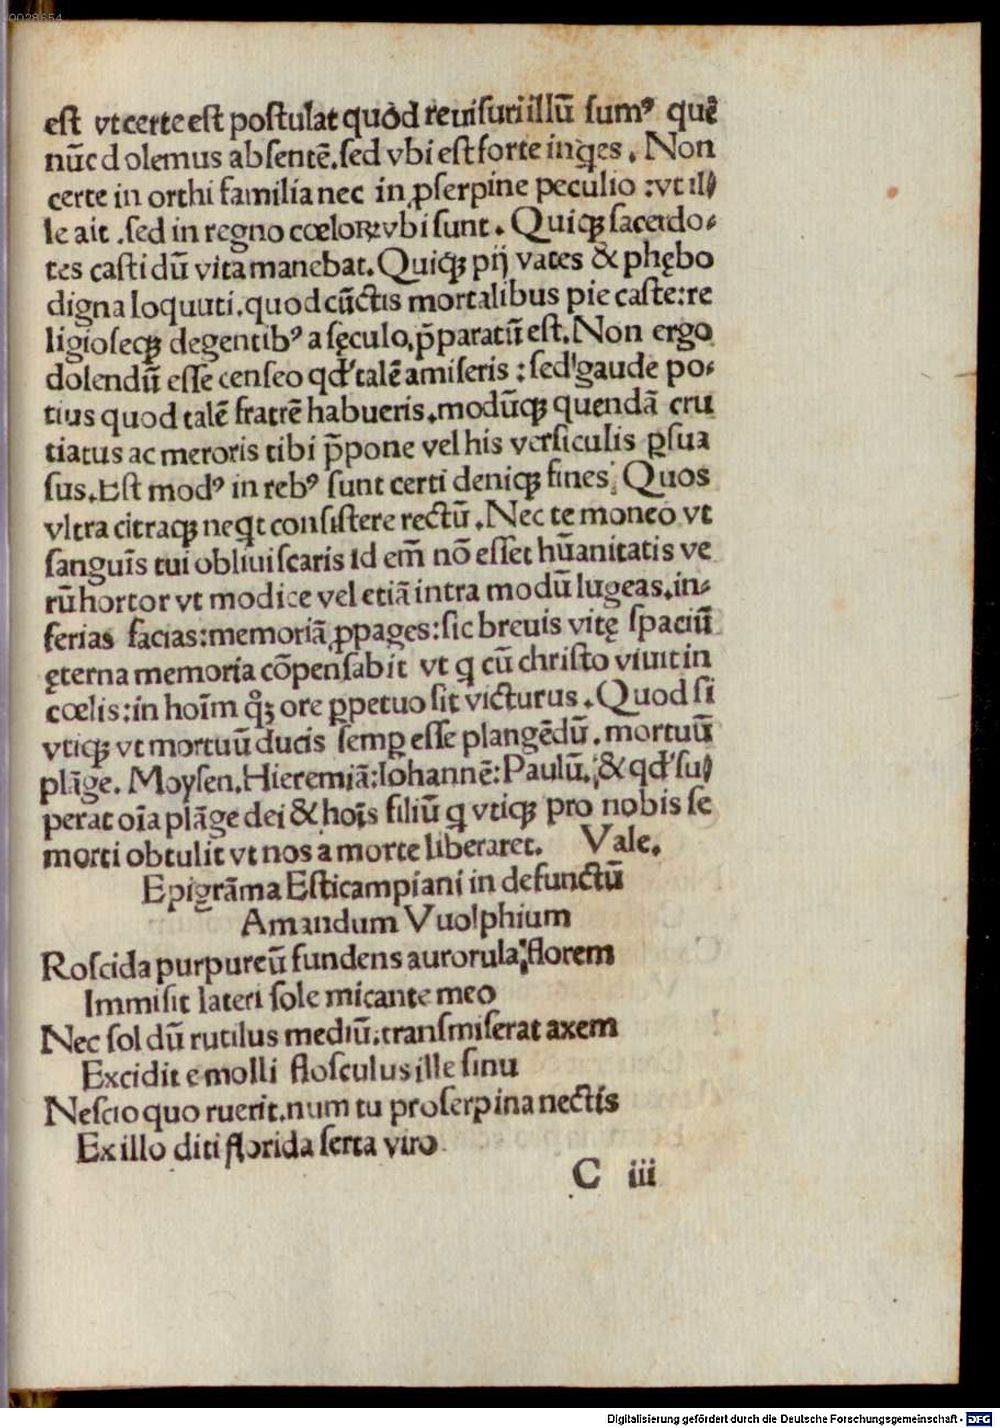 0028654
eſt vt certe eſt poſtulat quòd reuiſuri illū ſumꝰ quē
nūc dolemus abſentē.ſed vbi eſt forte inq̇es. Non
certe in orthi familia nec in ꝓſerpine peculio :vt il⸗
le ait .ſed in regno cœloꝝ vbi ſunt. Quiqꝫ ſacerdo⸗
tes caſti dū vita manebat. Quiqꝫ pij vates & phębo
digna loquuti.quod cūctis mortalibus pie caſte:re
ligioſeqꝫ degentibꝰ a ſęculo p̄paratū eſt. Non ergo
dolendū eſſe cenſeo qđ talē amiſeris : ſed gaude po⸗
tius quod talē fratrē habueris.modūqꝫ quendā cru
tiatus ac meroris tibi p̄pone vel his verſiculis ꝑſua
ſus.Eſt modꝰ in rebꝰ ſunt certi deniqꝫ fines: Quos
vltra citraqꝫ neq̇t conſiſtere rectū. Nec te moneo vt
ſanguīs tui obliuiſcaris id em̄ nō eſſet hūanitatis ve
rū hortor vt modice vel etiā intra modū lugeas.in⸗
ferias facias:memoriā ꝓpages:ſic breuis vitę ſpaciū
ęterna memoria cōpenſabit vt q cū chriſto viuit in
cœlis:in hoīm qꝫ ore ꝑpetuo ſit victurus. Quod ſi
vtiqꝫ vt mortuū ducis ſemꝑ eſſe plangēdū.mortuū
plāge. Moyſen.Hieremiā:Iohannē:Paulū.:& qđ ſu⸗
perat oīa plāge dei & hoīs filiū q vtiqꝫ pro nobis ſe
morti obtulit vt nos a morte liberaret. Vale.
Epigrāma Eſticampiani in defunctū
Amandum Vuolphium
Roſcida purpureū fundens aurorula florem
Immiſit lateri ſole micante meo
Nec ſol dū rutilus mediū:tranſmiſerat axem
Excidit e molli floſculus ille ſinu
Neſcio quo ruerit.num tu proſerpina nectis
Ex illo diti florida ſerta viro
C iii
Digitalisierung gefördert durch die Deutsche Forschungsgemeinschaft - DFG